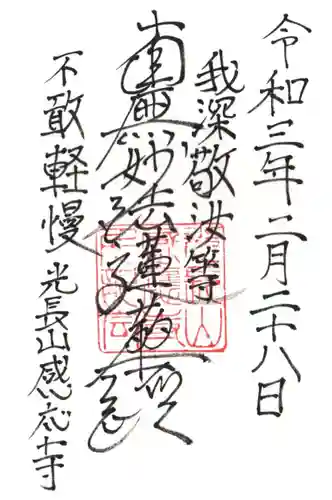 令和三年二月二十八日
我深敬汝等
南無妙法蓮華経
不敢軽慢
光長山感応寺